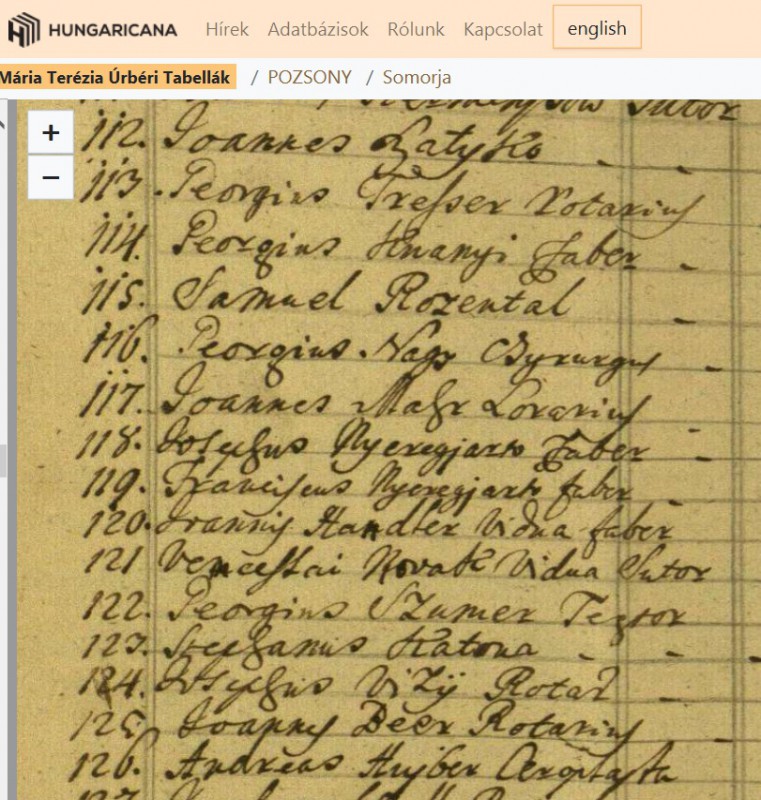 HUNGARICANA Hírek Adatbázisok Rólunk Kapcsolat english
Mária Terézia Úrbéri Tabellák / POZSONY / Somorja
+
−
Sutor
112. Joannes Latysko
113. Georgius Tresser Rotarius
114. Georgius Hnanyi Faber
115. Samuel Rozental
116. Georgius Nagy Chyrurgus
117. Joannes Majr Lorarius
118. Josephus Nyeregjarto Faber
119. Franciscus Nyeregjarto faber
120. Joannis Handler Vidua faber
121 Venceslai Novak Vidua Sutor
122. Georgius Szumer Textor
123. Stephanus Katona
124. Josephus Vizy Rotar
125. Joannes Beer Rotarius
126. Andreas Hujber
127.